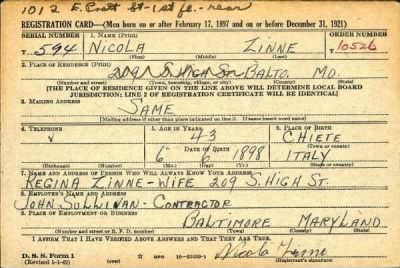 1012 E. Pratt St - 1st fl. - rear
REGISTRATION CARD—(Men born on or after February 17, 1897 and on or before December 31, 1921)
SERIAL NUMBER 1. NAME (Print) ORDER NUMBER
594 NICOLA ZINNE 10526
(First) (Middle) (Last)
2. PLACE OF RESIDENCE (Print)
209 S. HIGH ST. BALTO. MD.
(Number and street) (Town, township, village, or city) (County) (State)
[THE PLACE OF RESIDENCE GIVEN ON THE LINE ABOVE WILL DETERMINE LOCAL BOARD
JURISDICTION; LINE 2 OF REGISTRATION CERTIFICATE WILL BE IDENTICAL]
3. MAILING ADDRESS
SAME
[Mailing address if other than place indicated on line 2. If same insert word same]
4. TELEPHONE 5. AGE IN YEARS 6. PLACE OF BIRTH
43 CHIETE
DATE OF BIRTH (Town or county)
6 6 1898 ITALY
(Exchange) (Number) (Mo.) (Day) (Yr.) (State or country)
7. NAME AND ADDRESS OF PERSON WHO WILL ALWAYS KNOW YOUR ADDRESS
REGINA ZINNE - WIFE 209 S. HIGH ST.
8. EMPLOYER'S NAME AND ADDRESS
JOHN SULLIVAN - CONTRACTOR
9. PLACE OF EMPLOYMENT OR BUSINESS
BALTIMORE MARYLAND
(Number and street or R. F. D. number) (Town) (County) (State)
I AFFIRM THAT I HAVE VERIFIED ABOVE ANSWERS AND THAT THEY ARE TRUE.
D. S. S. Form 1 GPO
(Revised 1-1-42) (Registrant's signature)
Nicola Zinne